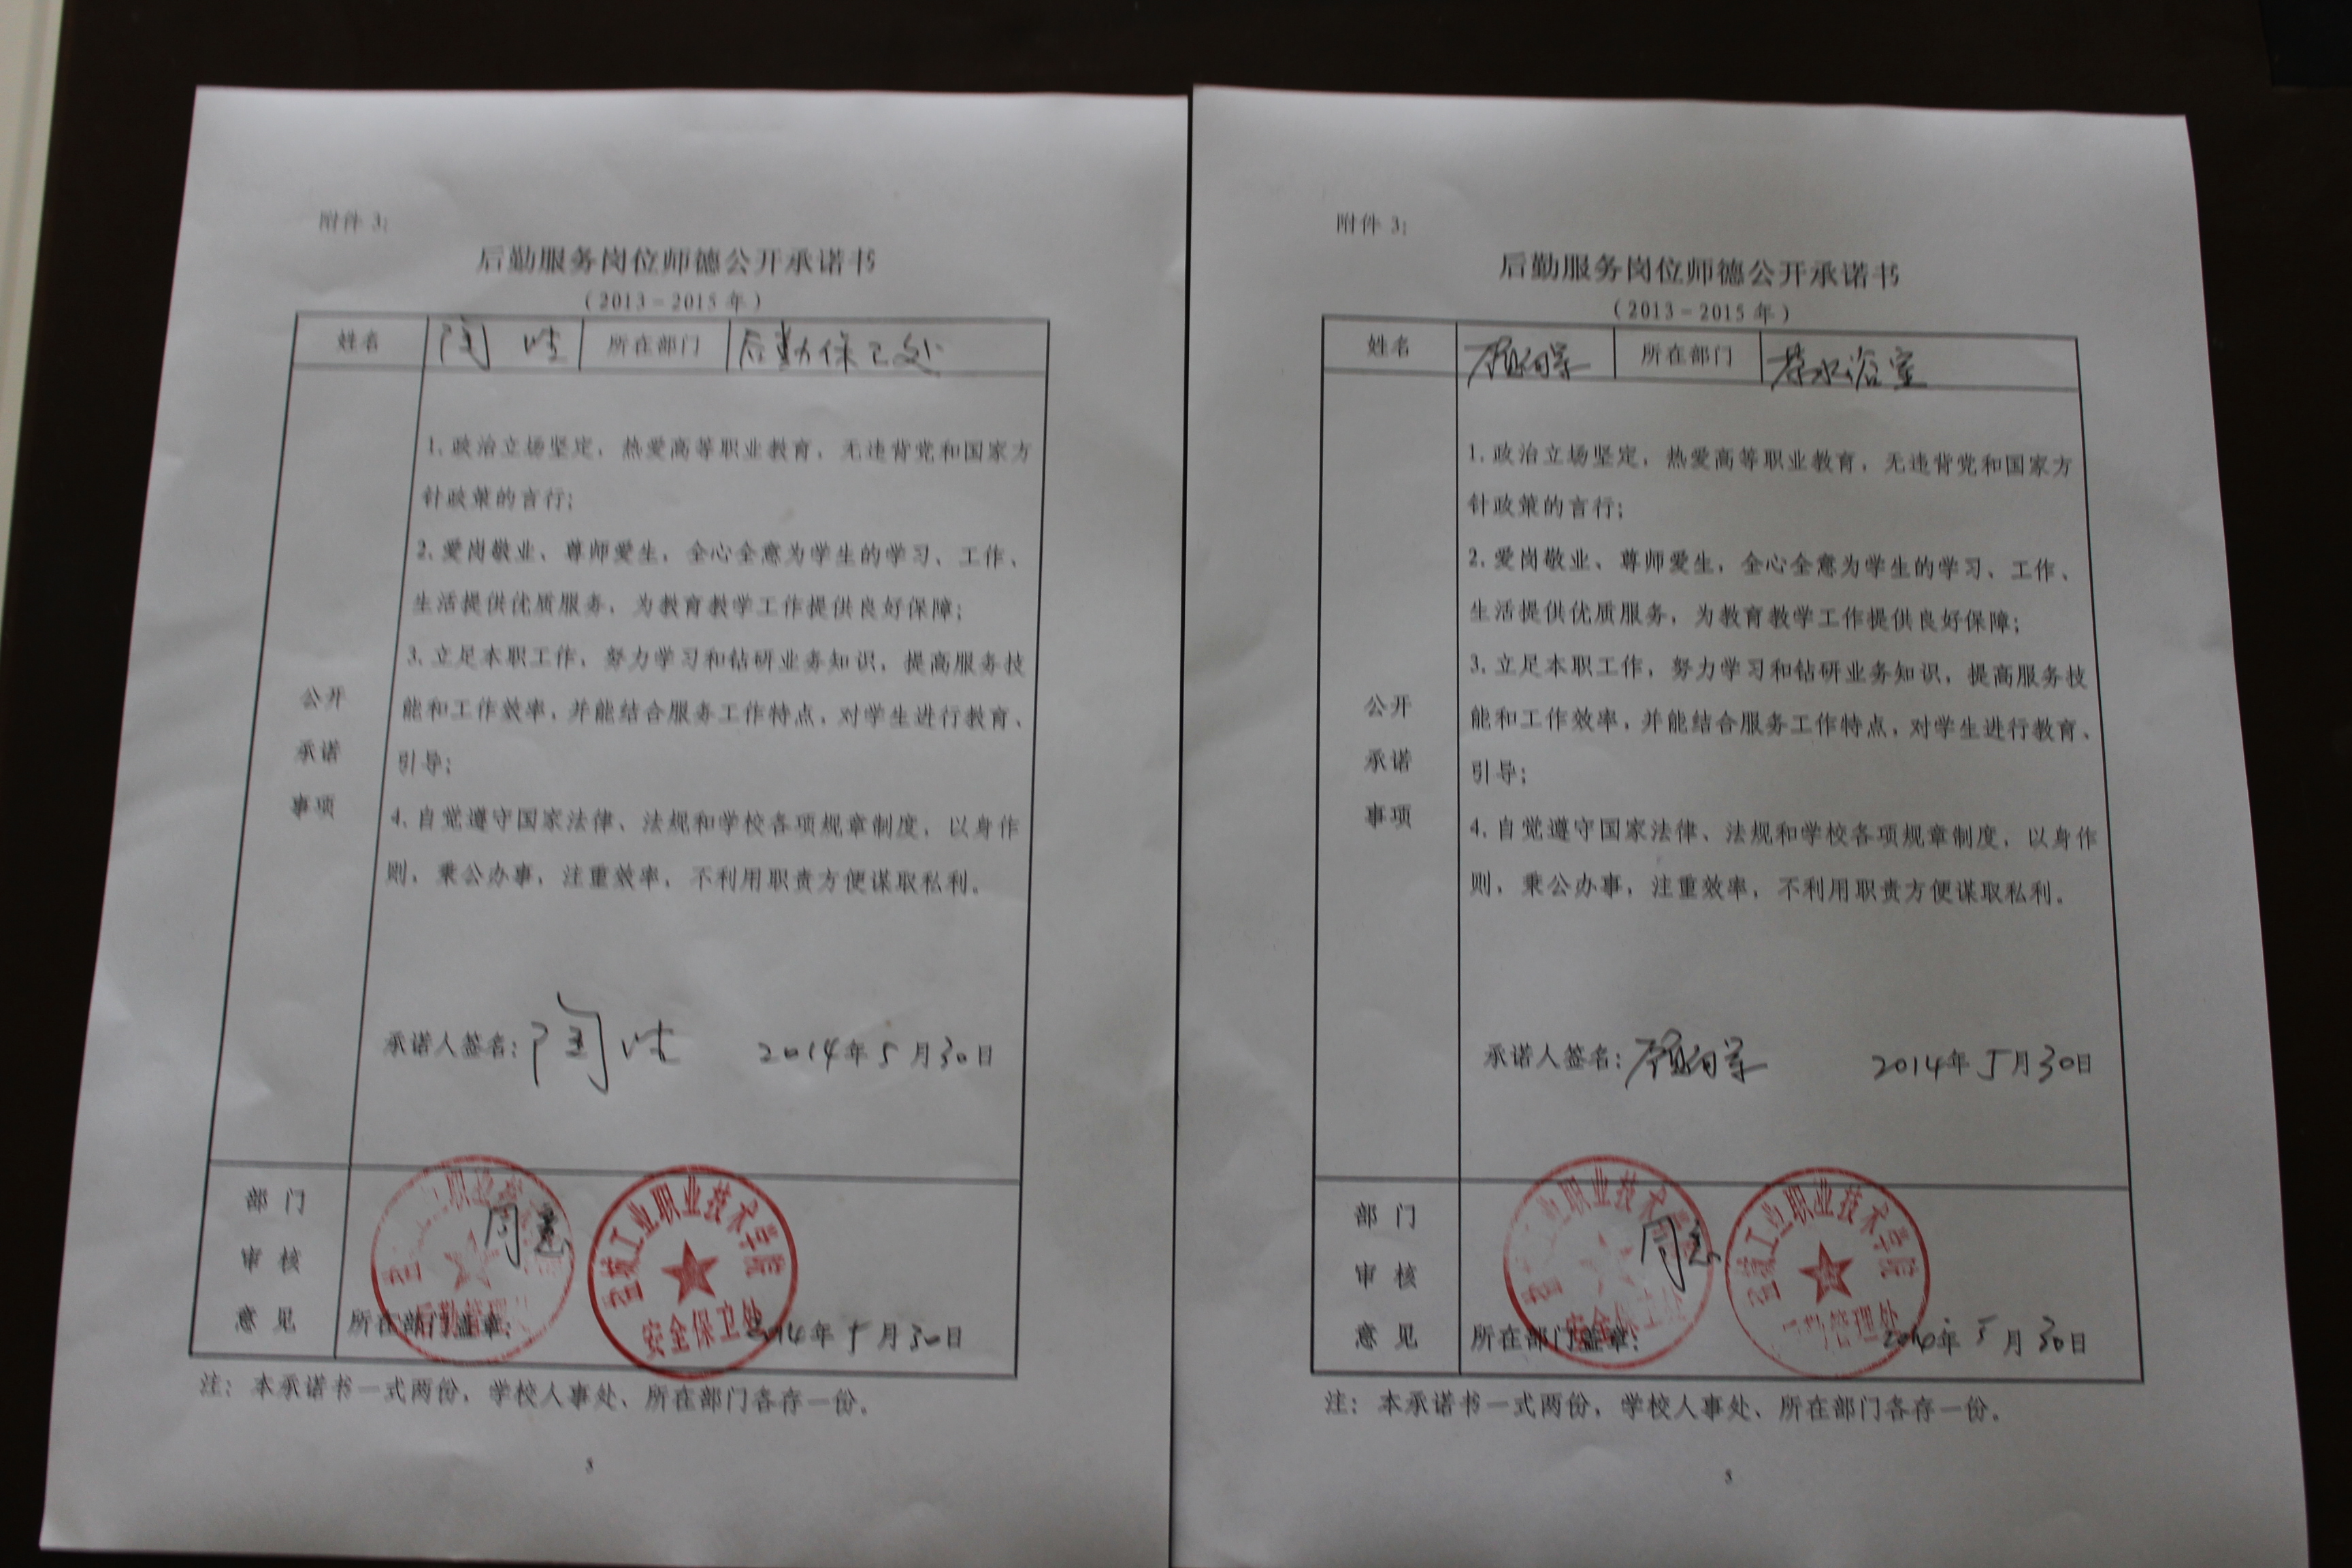 附件 3:
后勤服务岗位师德公开承诺书
（2013－2015 年）
姓名 陶 所在部门 后勤保卫处
公开
承诺
事项
1. 政治立场坚定，热爱高等职业教育，无违背党和国家方
针政策的言行；
2. 爱岗敬业、尊师爱生，全心全意为学生的学习、工作、
生活提供优质服务，为教育教学工作提供良好保障；
3. 立足本职工作，努力学习和钻研业务知识，提高服务技
能和工作效率，并能结合服务工作特点，对学生进行教育、
引导；
4. 自觉遵守国家法律、法规和学校各项规章制度，以身作
则，秉公办事，注重效率，不利用职责方便谋取私利。
承诺人签名：陶 2014年5月30日
部 门
审 核
意 见
同意
工业职业技术学院
安全保卫处
所在部门盖章： 2014年5月30日
注：本承诺书一式两份，学校人事处、所在部门各存一份。
5
附件 3:
后勤服务岗位师德公开承诺书
（2013－2015 年）
姓名 所在部门 茶水浴室
公开
承诺
事项
1. 政治立场坚定，热爱高等职业教育，无违背党和国家方
针政策的言行；
2. 爱岗敬业、尊师爱生，全心全意为学生的学习、工作、
生活提供优质服务，为教育教学工作提供良好保障；
3. 立足本职工作，努力学习和钻研业务知识，提高服务技
能和工作效率，并能结合服务工作特点，对学生进行教育、
引导；
4. 自觉遵守国家法律、法规和学校各项规章制度，以身作
则，秉公办事，注重效率，不利用职责方便谋取私利。
承诺人签名： 2014年5月30日
部 门
审 核
意 见
同意
工业职业技术学院
安全保卫处
工业职业技术学院
管理处
所在部门盖章： 年5月30日
注：本承诺书一式两份，学校人事处、所在部门各存一份。
5